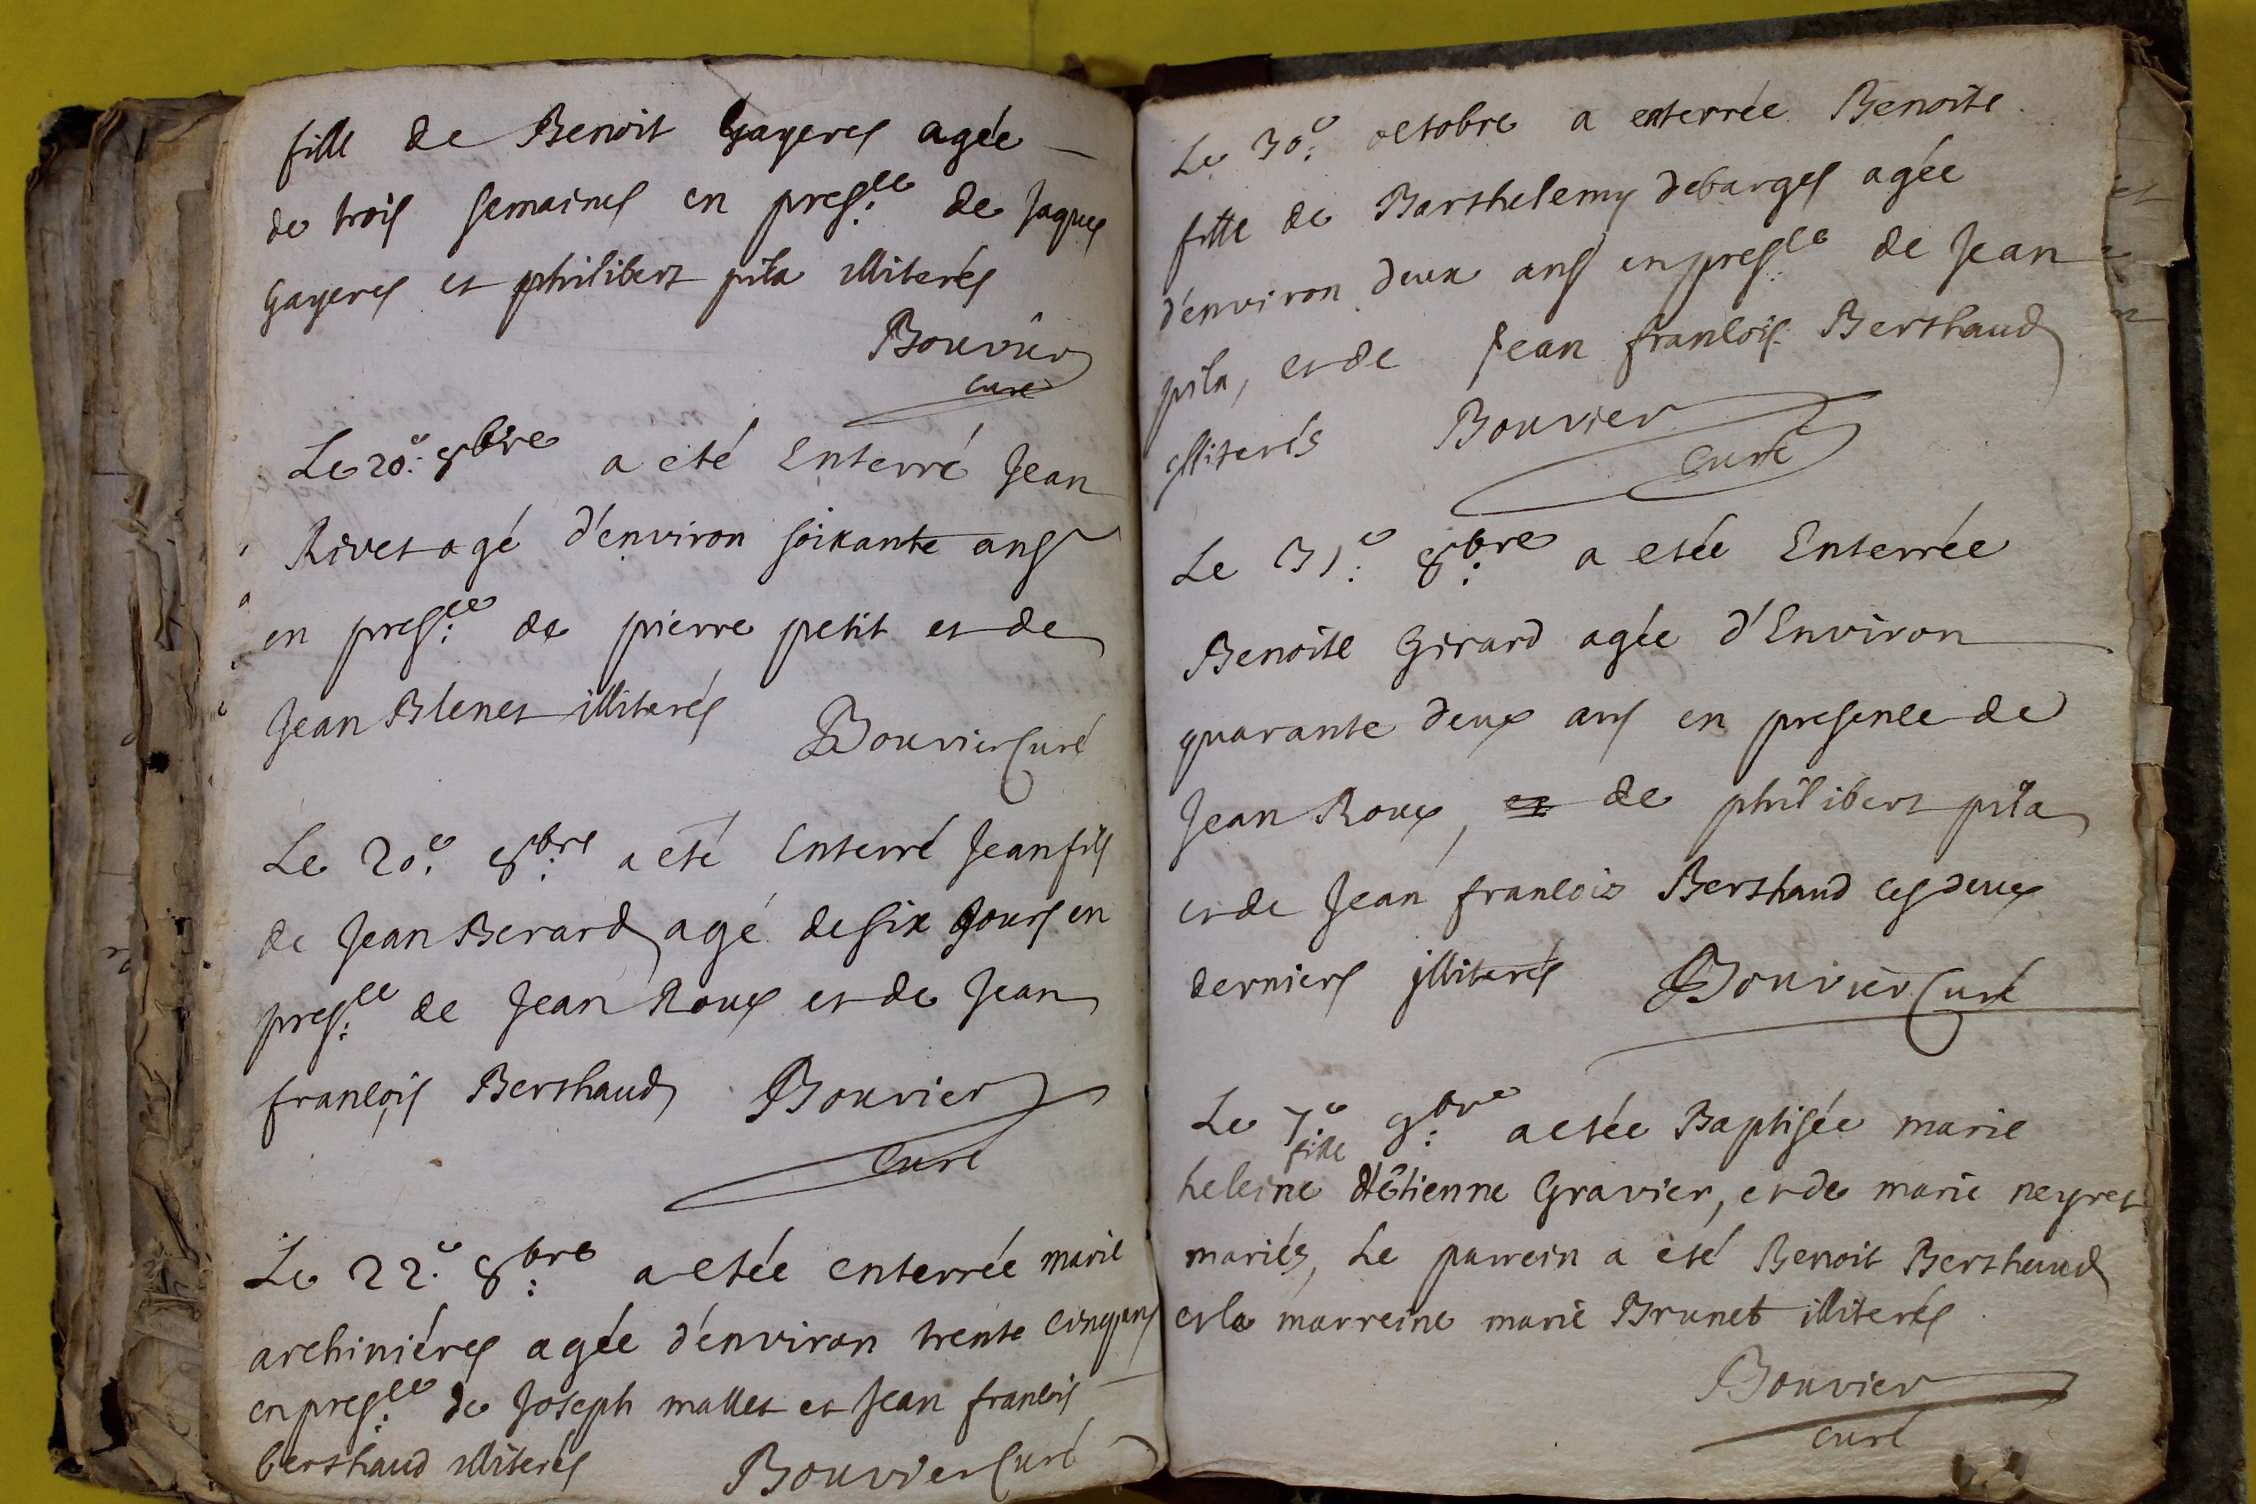 fille de Benoit Gayeres agée
de trois semaines en presce de Jaques
Gayeres et philibert pila illiterés
Bouvier
curé
Le 20e 8bre a eté Enterré Jean
Rivet agé d'environ soixante ans
en presce de pierre petit et de
Jean Blenet illiterés
Bouvier Curé
Le 20e 8bre a eté Enterré Jean fils
de Jean Berard agé de six Jours en
presce de Jean Roux et de Jean
francois Berthaud Bouvier
Curé
Le 22e 8bre a etée enterrée marie
archiniéres agée d'environ trente cinq ans
en presce de Joseph mallet et Jean francois
berthaud illiterés Bouvier Curé
Le 30e octobre a enterrée Benoite
fille de Barthelemy debarges agée
d'environ deux ans en presce de Jean
pila, et de Jean francois Berthaud
illiterés Bouvier
Curé
Le 31e 8bre a etée Enterrée
Benoite Girard agée d'Environ
quarante deux ans en presence de
Jean Roux, de philibert pila
et de Jean francois Berthaud ces deux
derniers illiterés Bouvier Curé
Le 7e 9bre a etée Baptisée marie
fille
heleine d'Etienne Gravier, et de marie neyret
mariés, Le parrein a èté Benoit Berthaud
et la marreine marie Brunet illiterés
Bouvier
curé